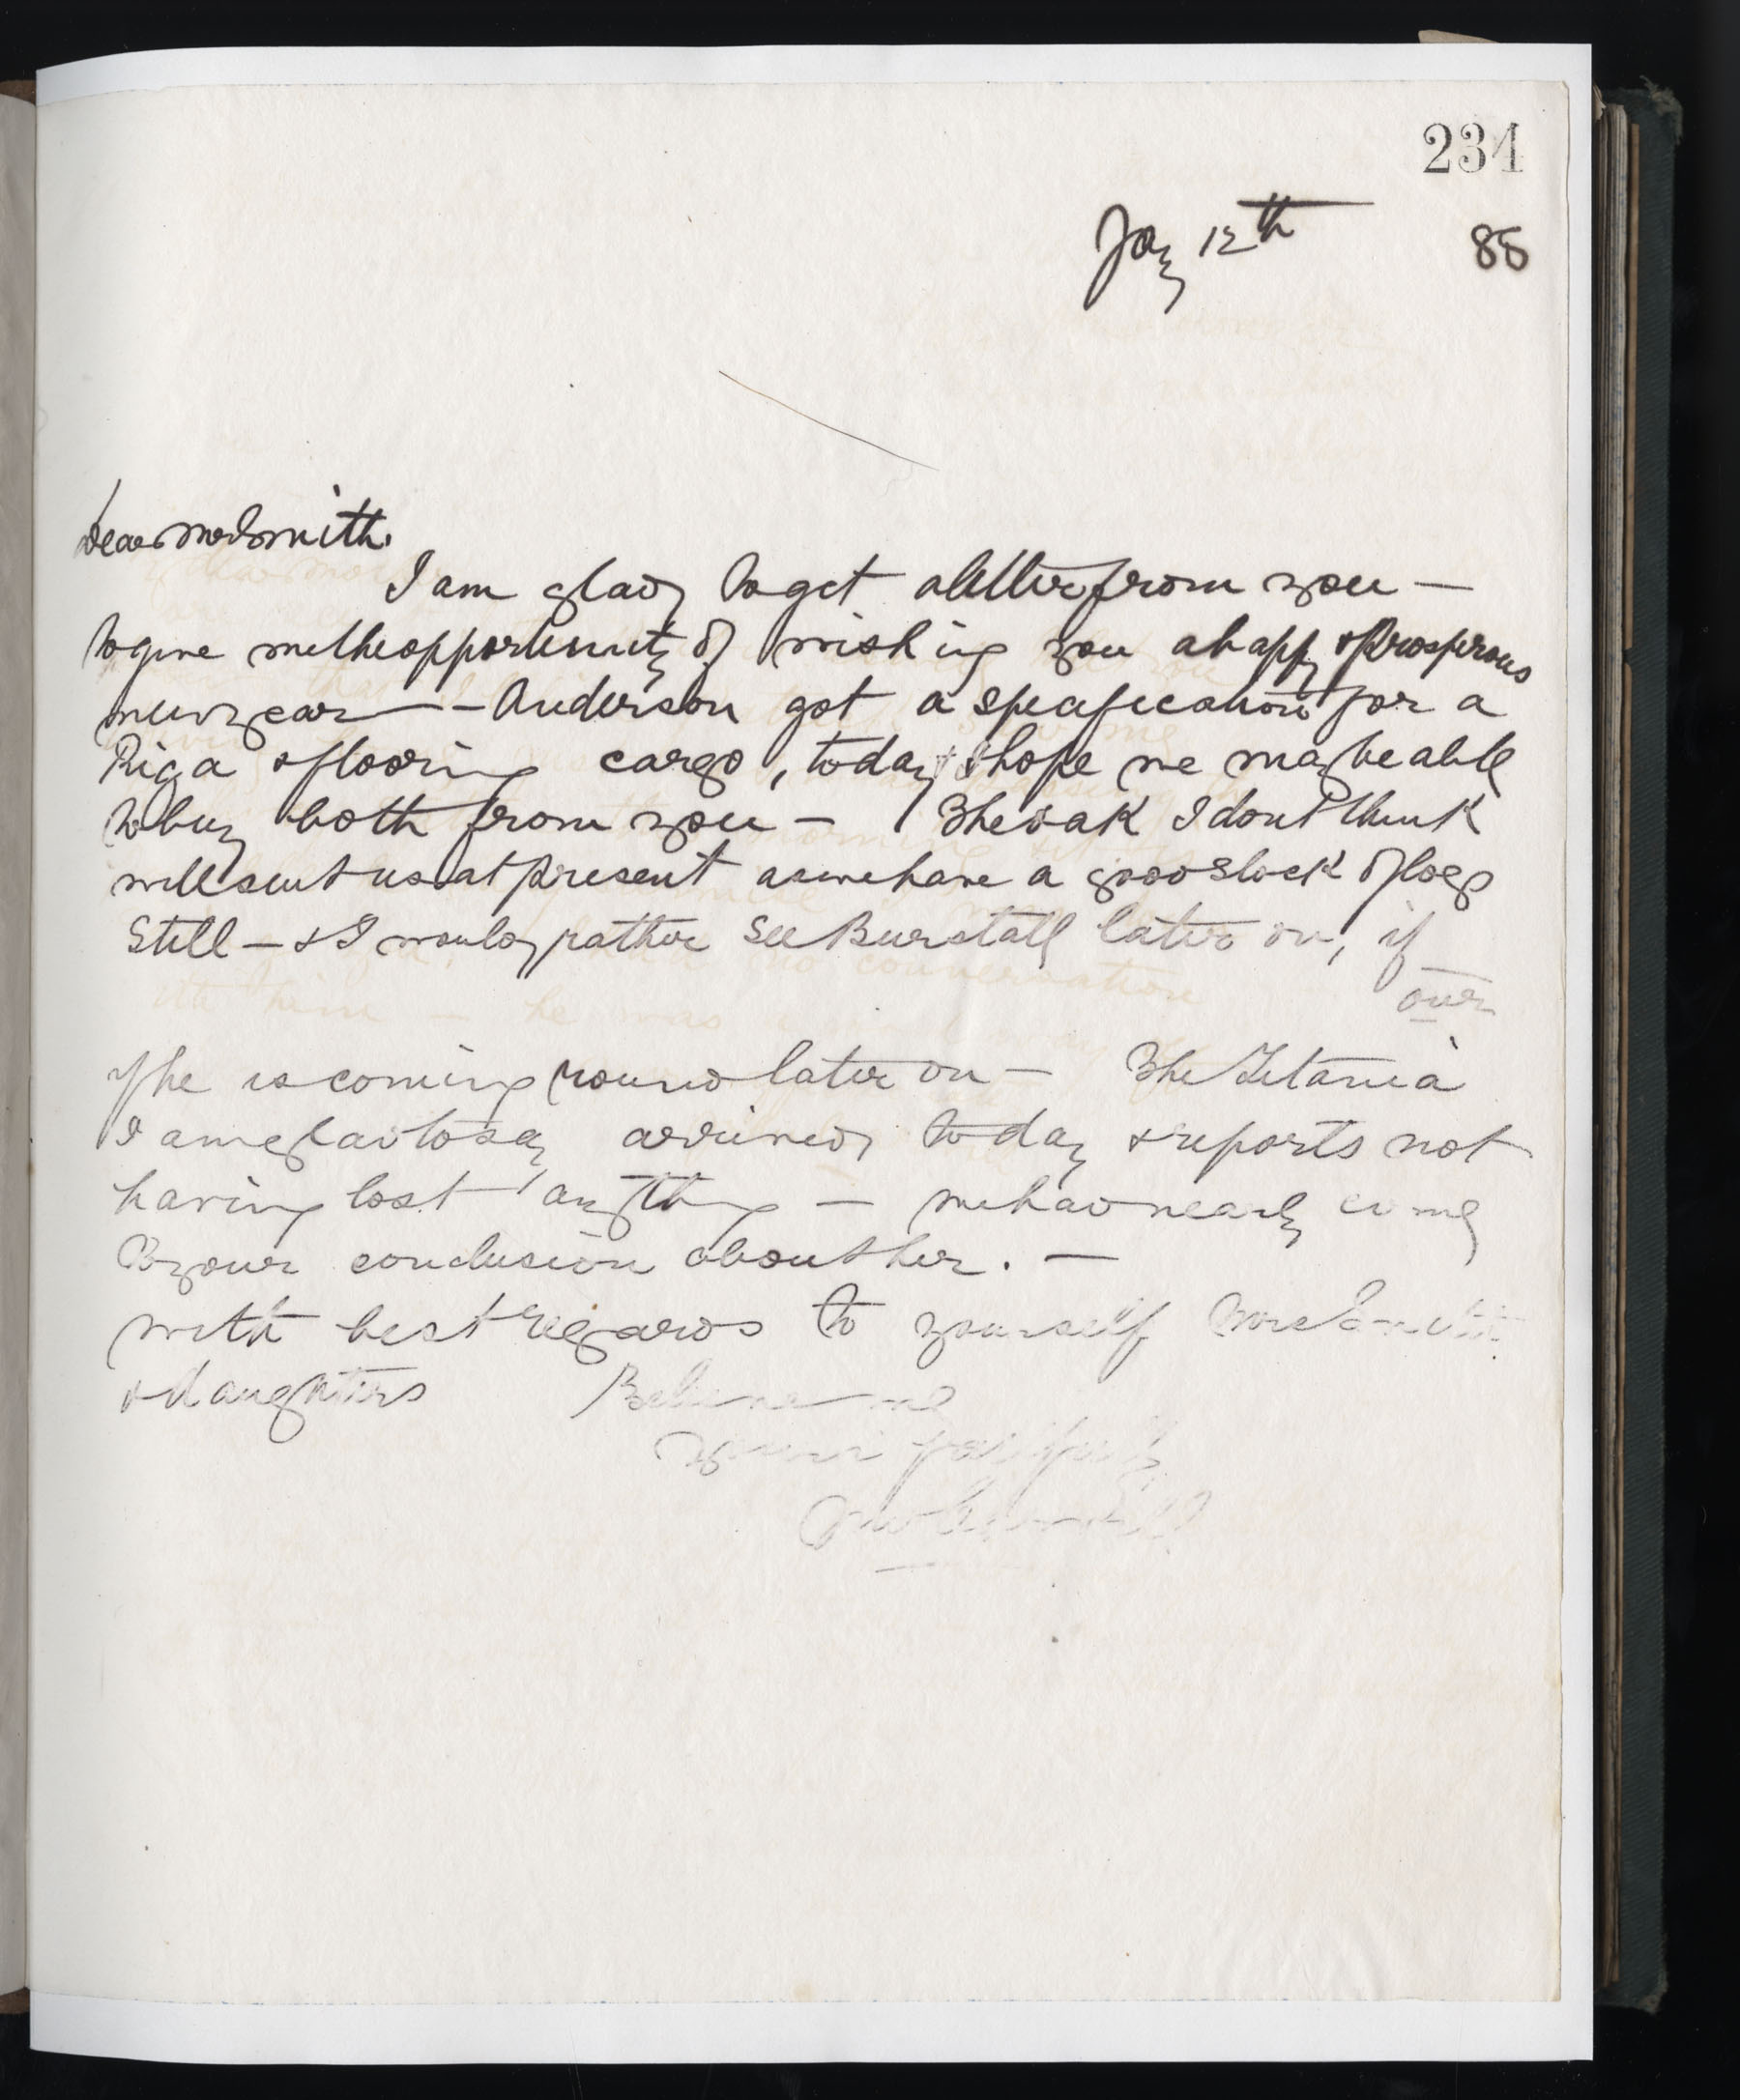 234
Jay 12th 88
Dear Mr Smith.
I am glad to get a letter from you —
to give me the opportunity of wishing you a happy & Prosperous
new year — Anderson got a specification for a
Riga & flooring cargo, today & I hope we may be able
to buy both from you — The oak I dont think
will suit us at present as we have a good Stock of logs
Still — & I would rather see Burstall later on, if
over
if he is coming round later on — The Titania
I am glad to say arrived today & reports not
having lost anything — we had nearly come
to your conclusion about her. —
with best regards to yourself Mrs Smith
& daughters Believe me
yours faithfully